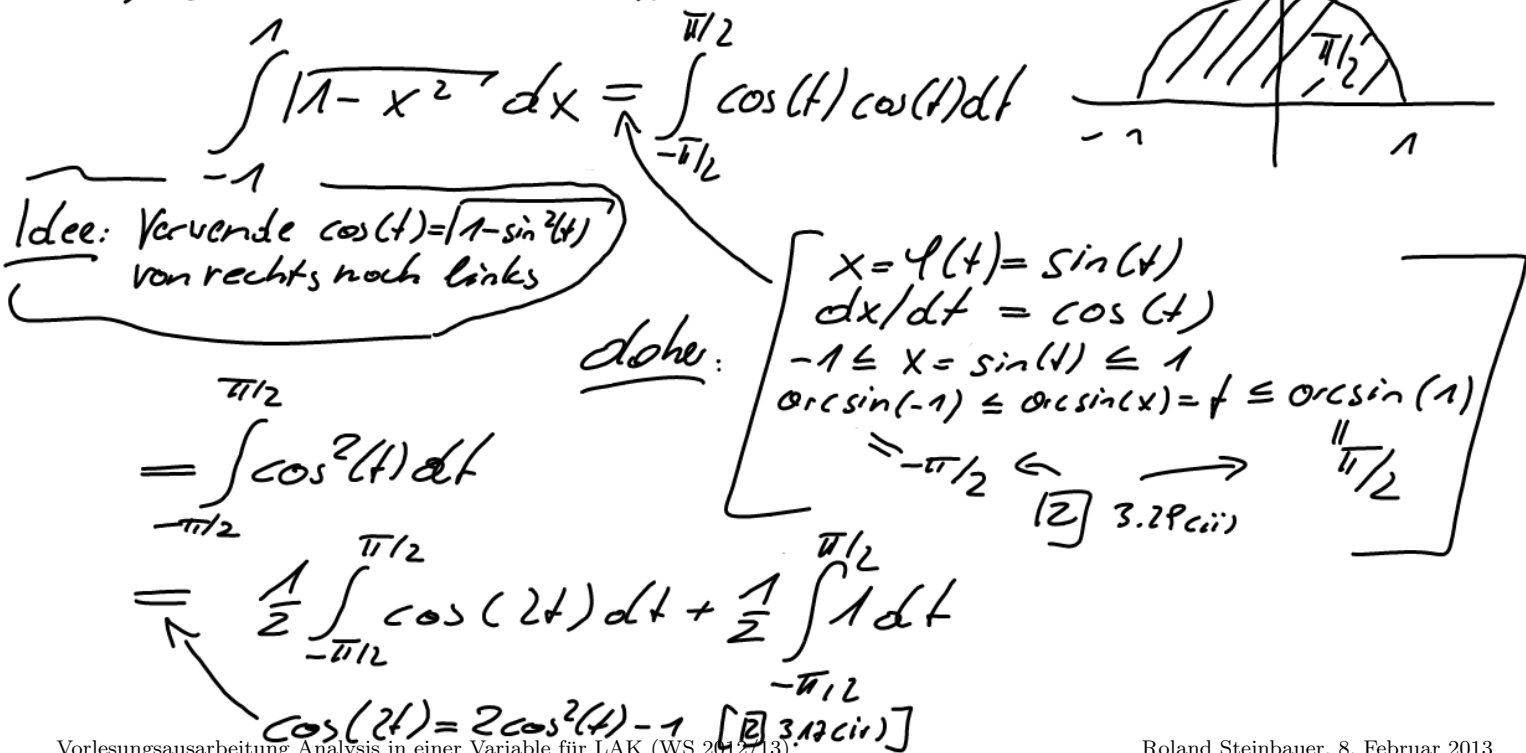 ∫_{-1}^{1} √(1-x²) dx = ∫_{-π/2}^{π/2} cos(t) cos(t) dt
π/2
-1 1
Idee: Verwende cos(t)=√(1-sin²(t))
von rechts nach links
daher:
x = φ(t) = sin(t)
dx/dt = cos(t)
-1 ≤ x = sin(t) ≤ 1
arcsin(-1) ≤ arcsin(x) = t ≤ arcsin(1)
= -π/2 ← → = π/2
[2] 3.29(ii)
= ∫_{-π/2}^{π/2} cos²(t) dt
= 1/2 ∫_{-π/2}^{π/2} cos(2t) dt + 1/2 ∫_{-π/2}^{π/2} 1 dt
cos(2t) = 2cos²(t) - 1 [[2] 3.17(iv)]
Vorlesungsausarbeitung Analysis in einer Variable für LAK (WS 2012/13). Roland Steinbauer, 8. Februar 2013